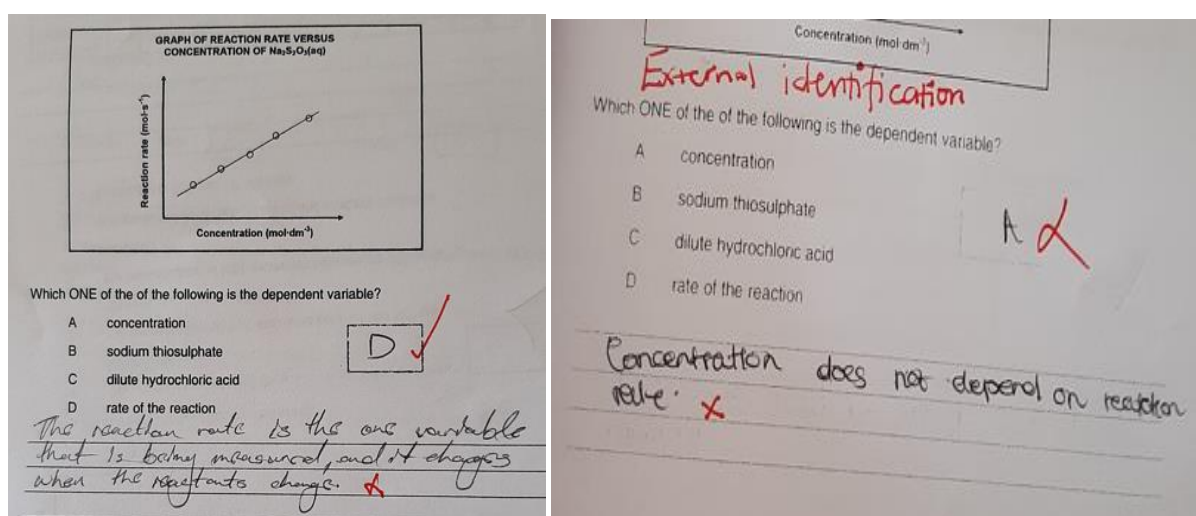 GRAPH OF REACTION RATE VERSUS
CONCENTRATION OF Na₂S₂O₃(aq)
Reaction rate (mol·s⁻¹)
Concentration (mol·dm⁻³)
Which ONE of the of the following is the dependent variable?
A concentration
B sodium thiosulphate
C dilute hydrochloric acid
D rate of the reaction
D
The reaction rate is the one variable
that is being measured, and it changes
when the reactants change.
Concentration (mol·dm⁻³)
External identification
Which ONE of the of the following is the dependent variable?
A concentration
B sodium thiosulphate
C dilute hydrochloric acid
D rate of the reaction
A
Concentration does not depend on reaction
rate.